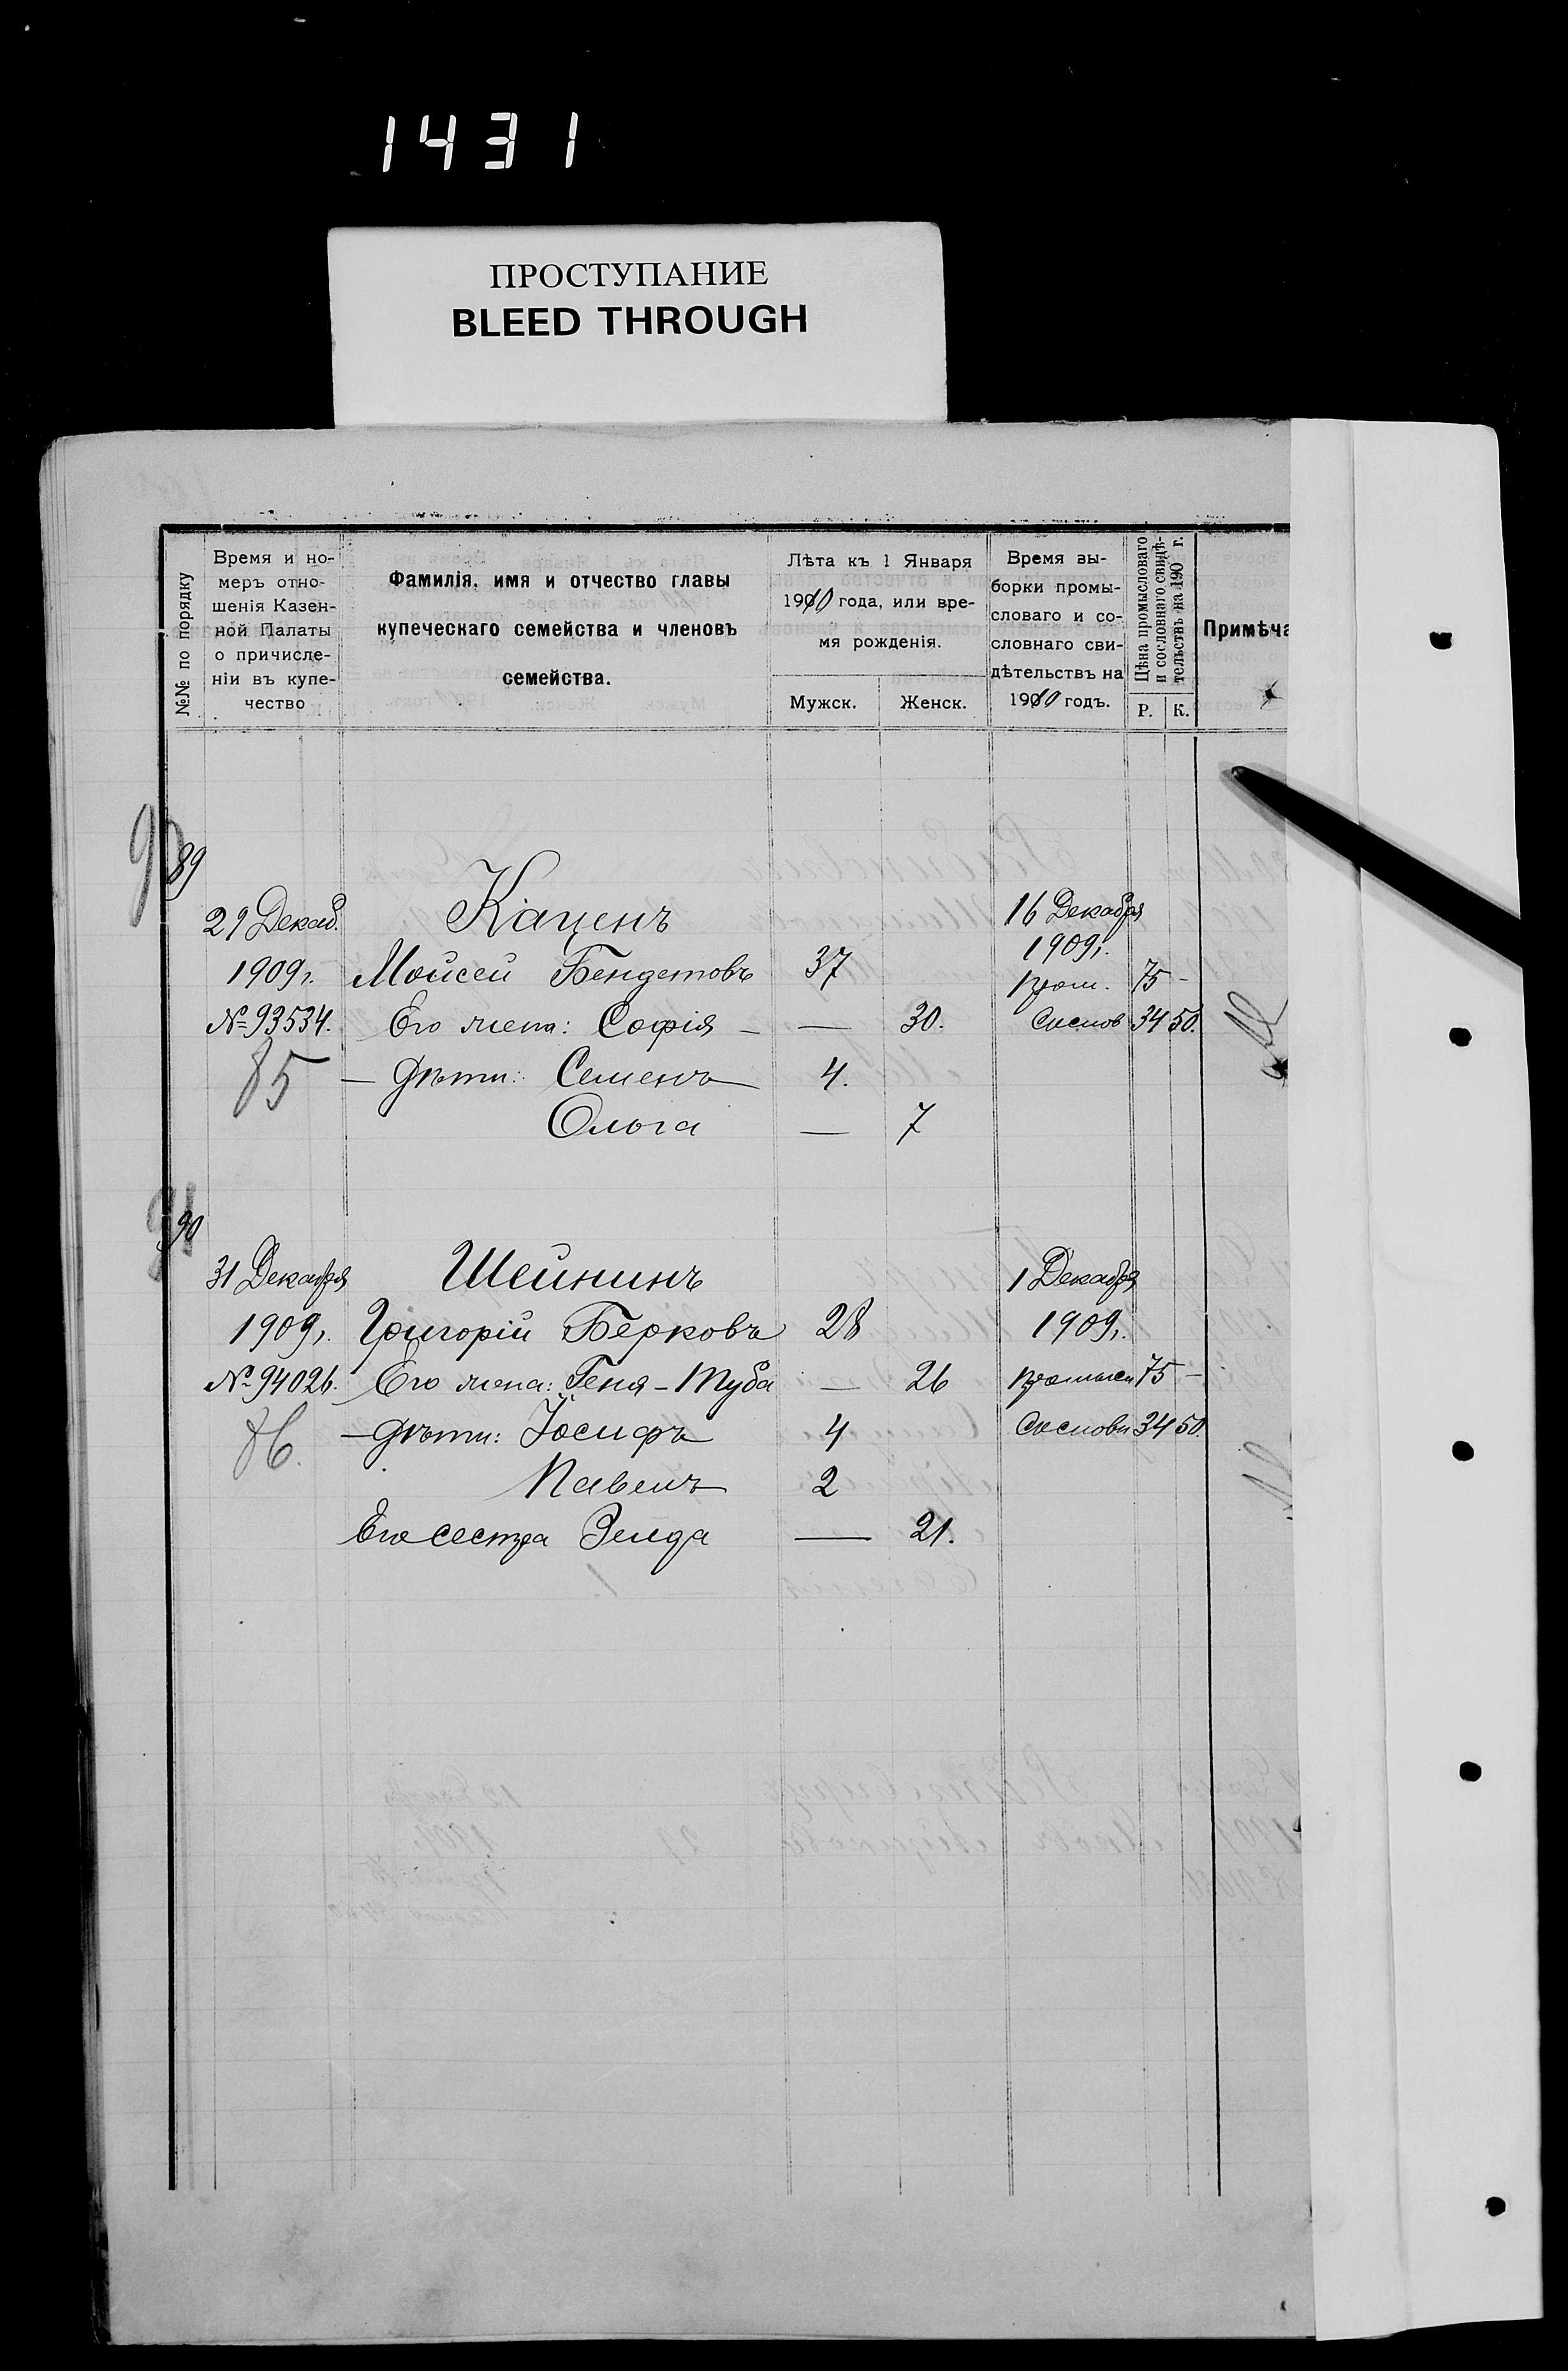 1431
ПРОСТУПАНИЕ
BLEED THROUGH
№№ по порядку
Время и но-
меръ отно-
шенія Казен-
ной Палаты
о причисле-
ніи въ купе-
чество
Фамилія, имя и отчество главы
купеческаго семейства и членовъ
семейства.
Лѣта къ 1 Января
1910 года, или вре-
мя рожденія.
Мужск. Женск.
Время вы-
борки промы-
словаго и со-
словнаго сви-
дѣтельствъ на
1910 годъ.
Цѣна промысловаго
и сословнаго свидѣ-
тельствъ на 190 г.
Р. К.
Примѣча
89
29 Декаб. Каценъ 16 Декабря
1909г.
1909г. Мойсей Бендетовъ 37 пром. 75 -
№ 93534. Его жена: София — 30. Сослов 34 50.
85 — Дѣти: Семенъ 4.
Ольга — 7
91
90
31 Декабря Шейнинъ 1 Декабря
1909г. Григорій Берковъ 28 1909г.
№ 94026. Его жена: Геня-Туба — 26 промысл 75 —
86. — Дѣти: Іосифъ 4 Сословн 34 50.
Павелъ 2
Его сестра Зелда — 21.